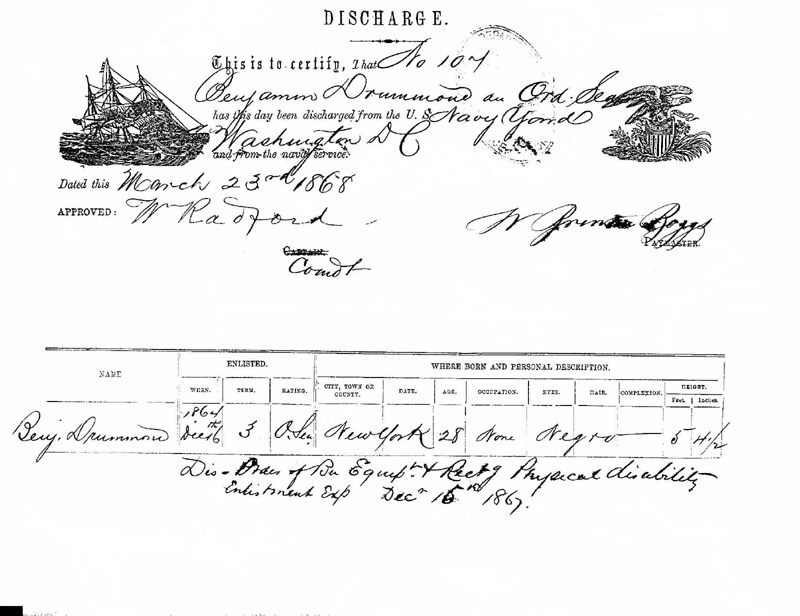 DISCHARGE.
This is to certify, That No 104
Benjamin Drummond an Ord. Sea
has this day been discharged from the U. S. Navy Yard
Washington D C
and from the naval service.
Dated this March 23rd 1868
APPROVED: W Radford
W Boggs
PAYMASTER.
CAPTAIN.
Comdt
NAME ENLISTED. WHERE BORN AND PERSONAL DESCRIPTION.
WHEN. TERM. RATING. CITY, TOWN OR COUNTY. DATE. AGE. OCCUPATION. EYES. HAIR. COMPLEXION. HEIGHT. Feet. Inches.
Benj. Drummond 1864 Dec 16th 3 O. Sea New York 28 None Negro 5 4 1/2
Dis- Order of Bu Equipt. & Rectg Physical disability
Enlistment Exp Decr 15th 1867.